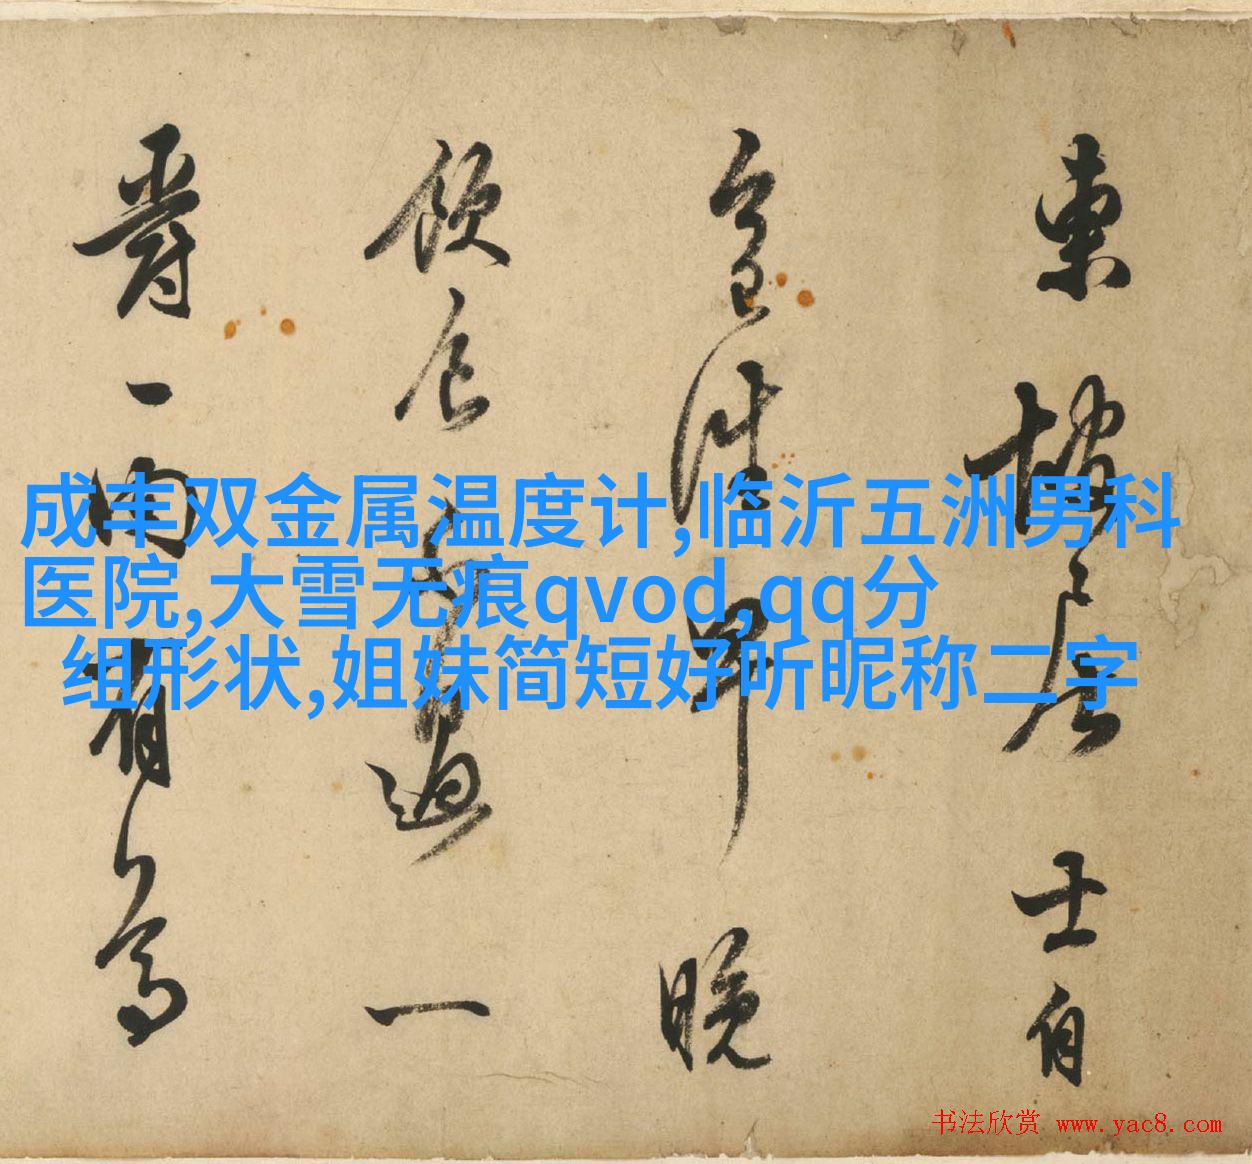 成丰双金属温度计,临沂五洲男科
医院,大雪无痕qvod,qq分
组形状,姐妹简短好听昵称二字
東坡居士自
今日往早晚
飲食不過一
爵一肉有
书法欣赏 www.yac8.com